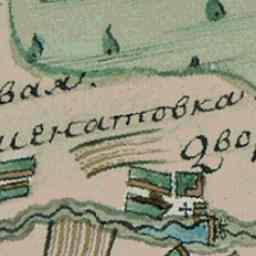 вая.
шенатовка
Двор